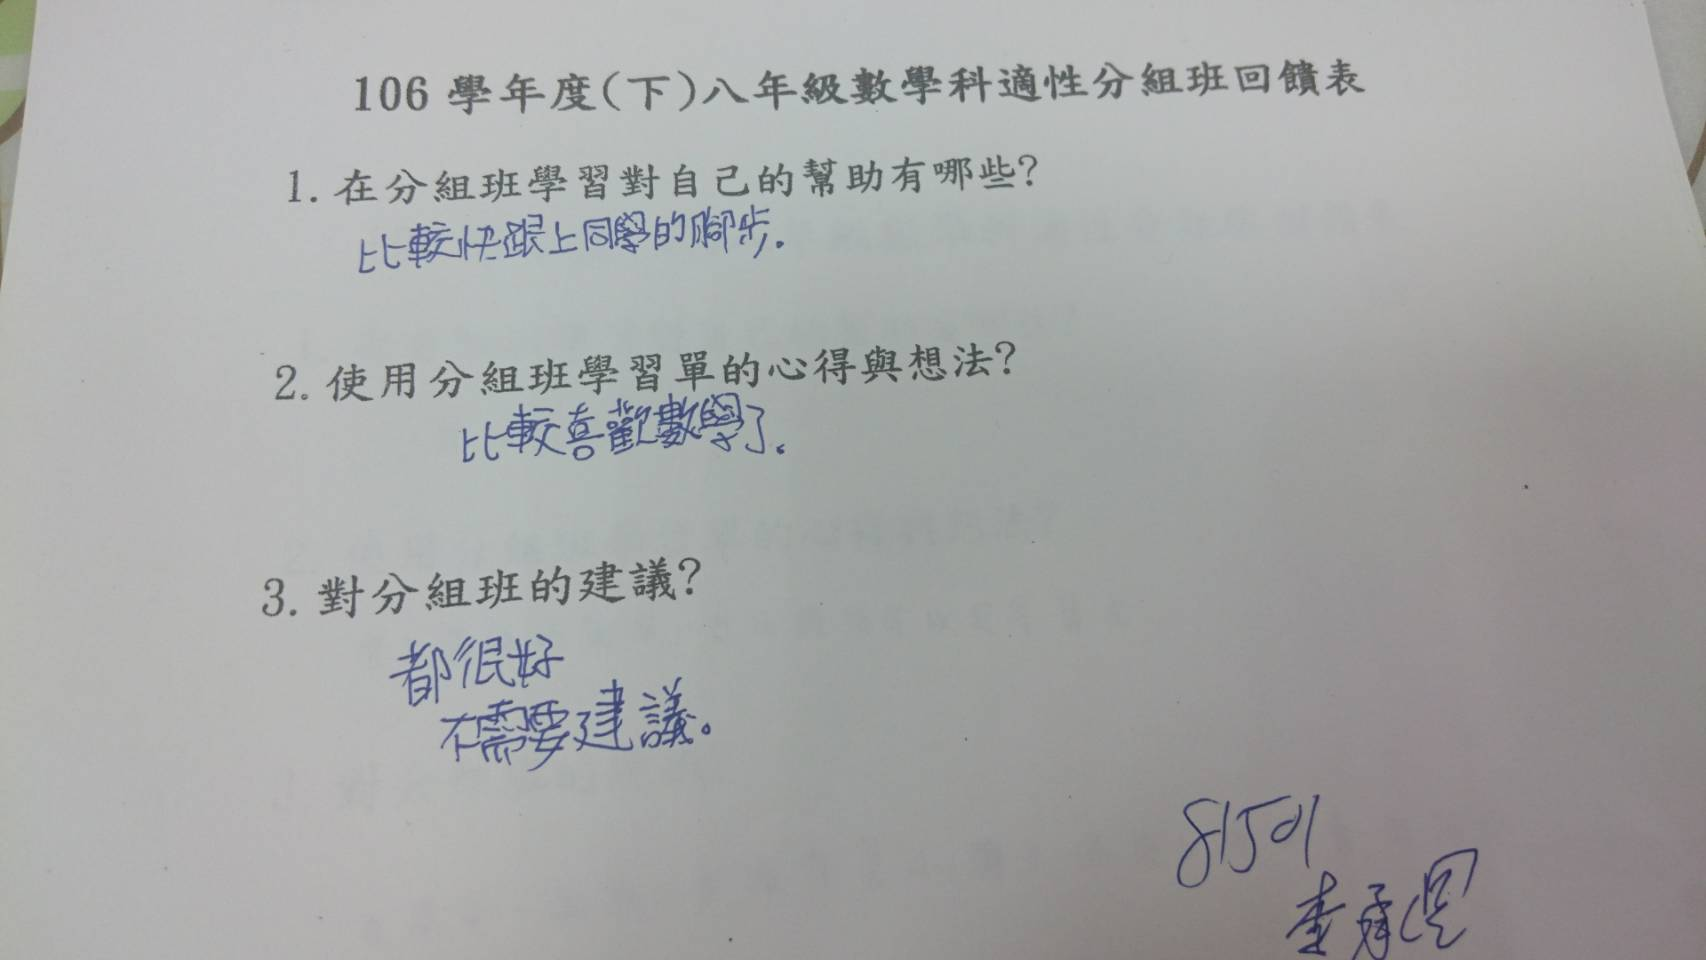 106 學年度(下)八年級數學科適性分組班回饋表
1. 在分組班學習對自己的幫助有哪些?
比較快跟上同學的腳步.
2. 使用分組班學習單的心得與想法?
比較喜歡數學了。
3. 對分組班的建議?
都很好
不需要建議。
81501